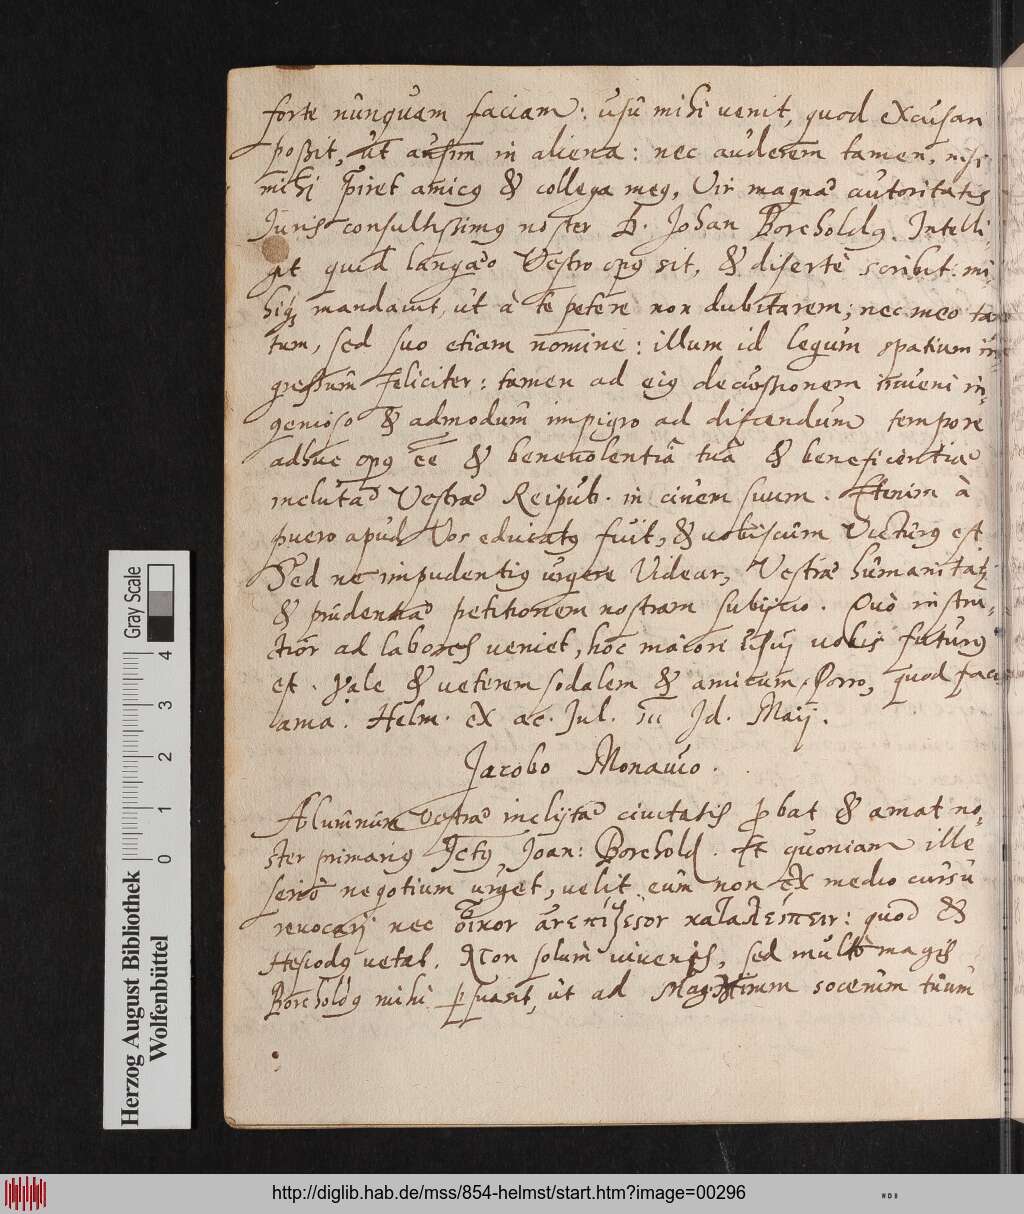 forte nunquam faciam: usu mihi uenit, quod excusari
poßit, ut ausim in aliena: nec auderem tamen, nisi
mihi amicq & collega meq, Vir magnae autoritatis
Juris consultissimq noster D. Johan Borcholdq. Intelli-
git quid Vestro opq sit, & diserte scribit: mi-
hiq mandauit, ut à te petere non dubitarem; nec meo tan
tum, sed suo etiam nomine: illum id legum spatium in-
gressum feliciter: tamen ad eiq decussionem iuueni in-
genioso & admodum impigro ad discendum tempore
adhuc opq ee & beneuolentiâ tuâ & beneficentiae
inclutae Vestrae Reipub. in ciuem suum. Etenim à
puero apud Vos educatq fuit, & uobiscum Victurq est
Sed ne impudentiq urgere Videar, Vestrae humanitati
& prudentiae petitionem nostram subijcio. Quò instru-
ctior ad labores ueniet, hoc maiori usui uobis futurq
est. Vale & ueterem sodalem & amicum Porro, quod facis
ama. Helm. ex ac. Jul. Jd. Maij.
Jacobo Monauio.
Alumnum Vestrae inclytae ciuitatis pbat & amat no-
ster primariq Jctq, Joan: Borchold. Et quoniam ille
serio negotium urget, uelit eum non ex medio cursu
reuocari nec οἶκον ἀνεπίξεστον καταλείπειν: quod &
Hesiodq uetat. Non solum iuuenis, sed multo magis
Borcholdq mihi psuasit, ut ad Magistrum socerum tuum
Herzog August Bibliothek
Wolfenbüttel
0 1 2 3 4
Gray Scale
http://diglib.hab.de/mss/854-helmst/start.htm?image=00296